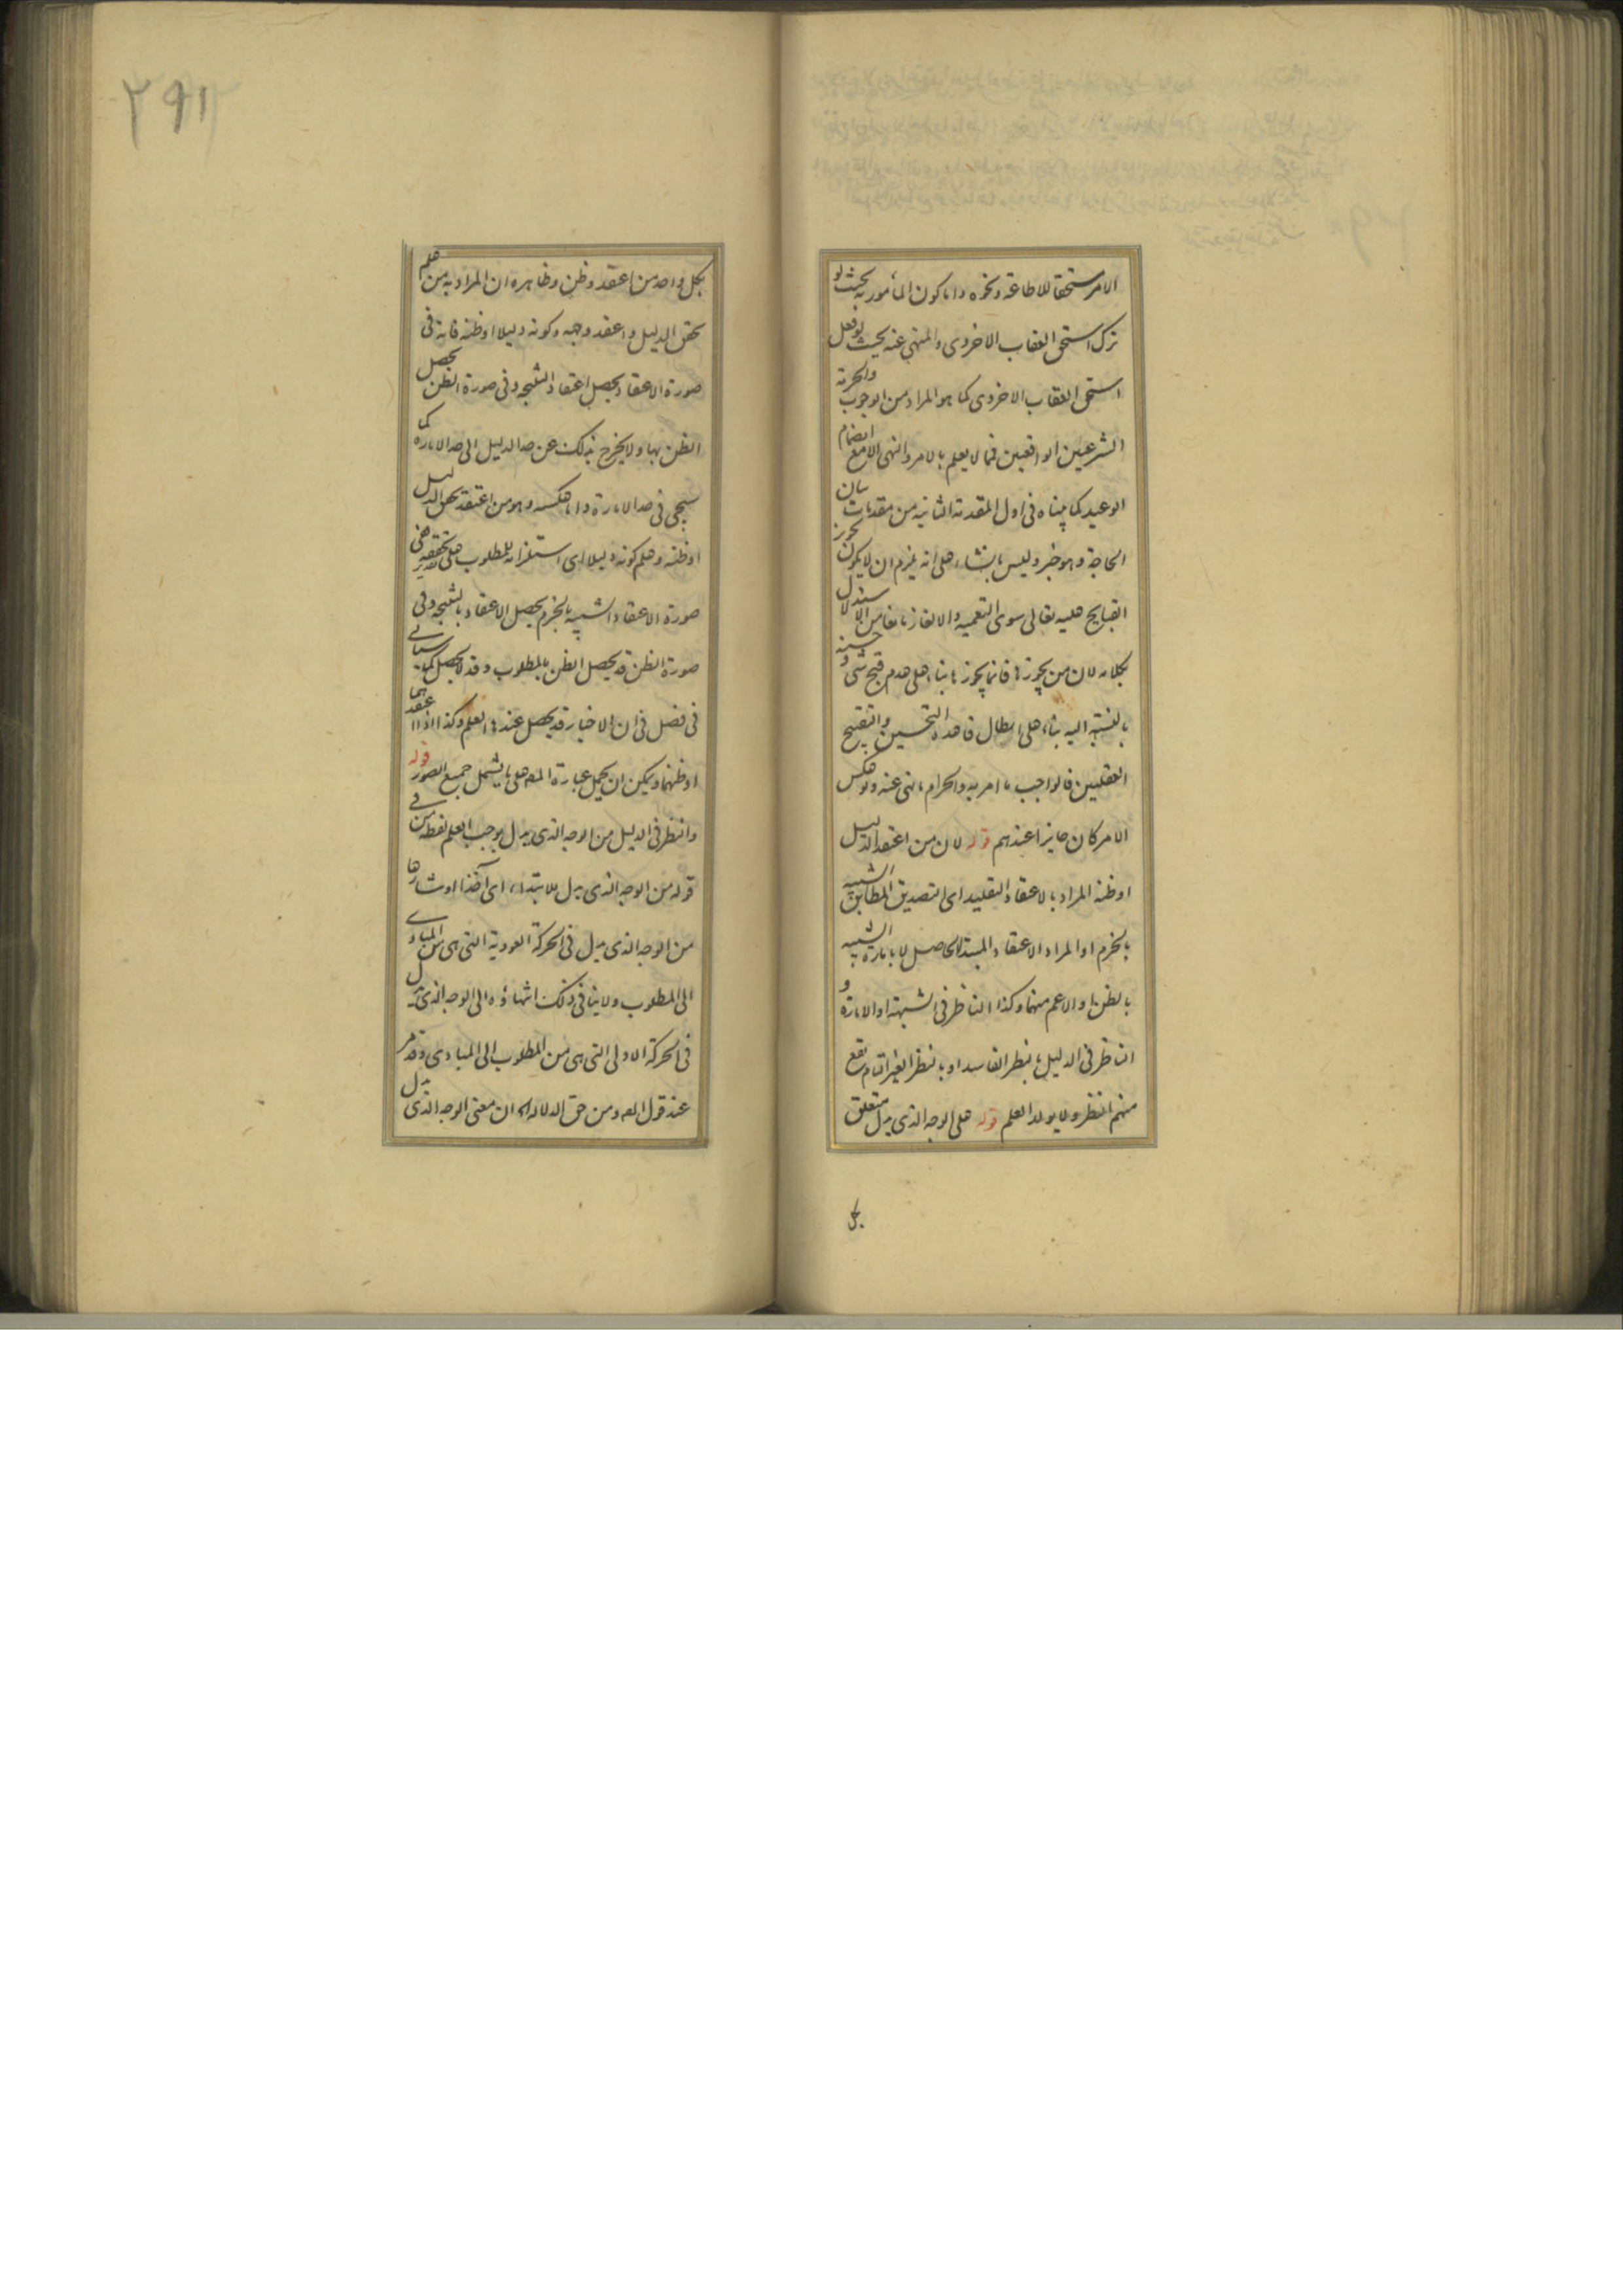 الامر مستحقا للاطاعة ونحوه واما كون المأمور به بحيث لو
ترك استحق العقاب الاخروى والمنهى عنه بحيث لو فعل
استحق العقاب الاخروى كما هو المراد من الوجوب والحرمة
الشرعيين الواقعيين فمما لا يعلم بالامر والنهى الا مع انضمام
الوعيد كما بيناه فى اول المقدمة الثانية من مقدمات بيان
الحاجة وهو خبر وليس بانشاء على انه يلزم ان لا يكون تجويز
القبايح عليه تعالى سوى التعمية والالغاز مانعا من الاستدلال
بكلامه لان من يجوزها فانما يجوزها بناء على عدم قبح شى وحسنه
بالنسبة اليه بناء على ابطال قاعدة التحسين والتقبيح
العقليين فالواجب ما امر به والحرام ما نهى عنه ولو عكس
الامر كان جايزا عندهم قوله لان من اعتقد الدليل
او ظنه المراد بالاعتقاد التقليد اى التصديق المطابق الشبيه
بالجزم او المراد الاعتقاد المبتدأ الحاصل لا بامارة الشبيه
بالظن او الاعم منهما وكذا الناظر فى الشبهة او الامارة و
الناظر فى الدليل بالنظر الفاسد او بالنظر الغير التام يقع
منهم النظر ولا يولد العلم قوله على الوجه الذى يدل متعلق
بكل
بكل واحد من اعتقد وظن وظاهره ان المراد به من علم
تحقق الدليل واعتقد وجهه وكونه دليلا او ظنه فانه فى
صورة الاعتقاد يحصل اعتقاد النتيجة وفى صورة الظن يحصل
الظن بها ولا يخرج بذلك عن حد الدليل الى حد الامارة كما
سيجى فى حد الامارة واما عكسه وهو من اعتقد تحقق الدليل
او ظنه وعلم كونه دليلا اى استلزامه للمطلوب على تقدير تحققه ففى
صورة الاعتقاد الشبيه بالجزم يحصل الاعتقاد بالنتيجة وفى
صورة الظن قد يحصل الظن بالمطلوب وقد لا يحصل كما سياتى
فى فصل فى ان الاخبار قد يحصل عندها العلم وكذا اذا اعتقدهما
او ظنهما ويمكن ان يحمل عبارة المصـ على ما يشمل جميع الصور قوله
والنظر فى الدليل من الوجه الذى يدل يوجب العلم لفظة من فى
قوله من الوجه الذى يدل للابتداء اى آخذا او شارعا
من الوجه الذى يدل فى الحركة العودية التى هى من المبادى
الى المطلوب ولا ينافى ذلك انتهاؤه الى الوجه الذى يدل
فى الحركة الاولى التى هى من المطلوب الى المبادى وقد مر
عند قول المصـ ومن حق الدلالة ان معنى الوجه الذى يدل